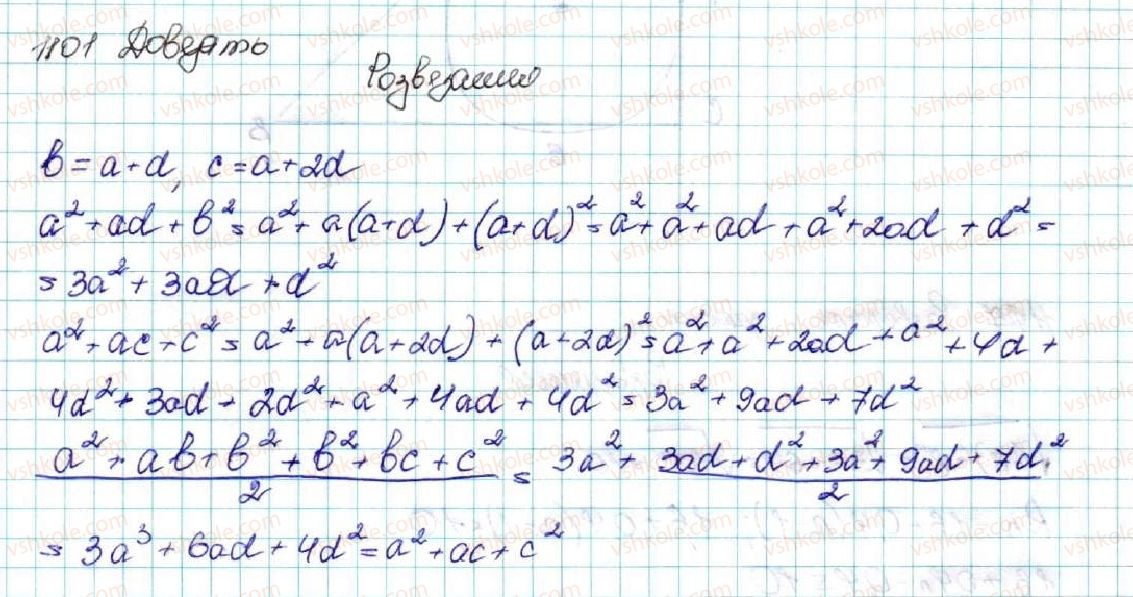 1101 Доведіть
Розвезання
b = a + d, c = a + 2d
a² + ad + b² = a² + a(a+d) + (a+d)² = a² + a² + ad + a² + 2ad + d² =
= 3a² + 3ad + d²
a² + ac + c² = a² + a(a+2d) + (a+2d)² = a² + a² + 2ad + a² + 4d +
4d² + 3ad + 2d² + a² + 4ad + 4d² = 3a² + 9ad + 7d²
(a² + ab + b² + b² + bc + c²)/2 = (3a² + 3ad + d² + 3a² + 9ad + 7d²)/2
= 3a³ + 6ad + 4d² = a² + ac + c²